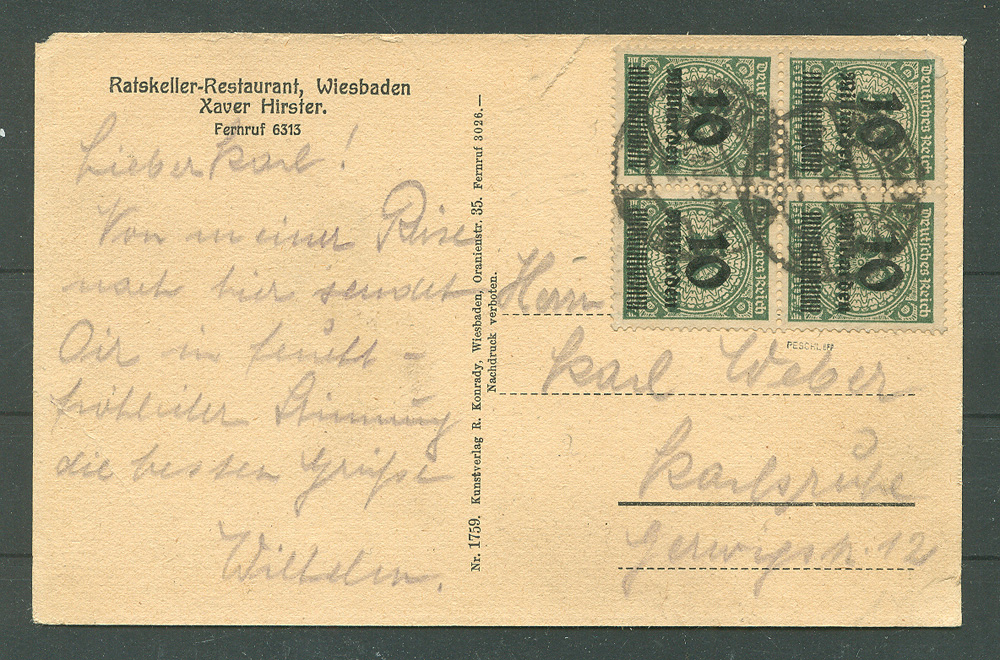 Ratskeller-Restaurant, Wiesbaden
Xaver Hirster.
Fernruf 6313
Lieber Karl!
Von meiner Reise
nach hier sendet
Dir in feucht-
fröhlicher Stimmung
die besten Grüße
Wilhelm.
Nr. 1759. Kunstverlag R. Konrady, Wiesbaden, Oranienstr. 35. Fernruf 3026.—
Nachdruck verboten.
Deutsches Reich
10
Milliarden
Deutsches Reich
10
Milliarden
Deutsches Reich
10
Milliarden
Deutsches Reich
10
Milliarden
PESCHL
Herrn
Karl Weber
Karlsruhe
Gerwigstr. 12